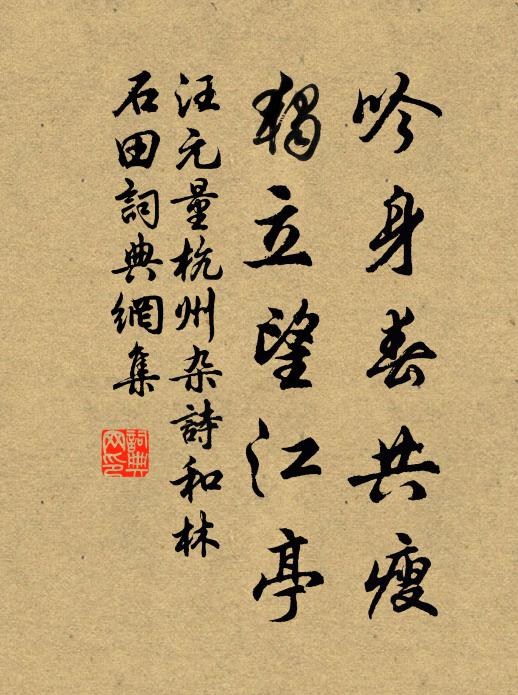 吟身春共瘦
獨立望江亭
汪元量杭州杂詩和林
石田詞典網集
詞典
网印